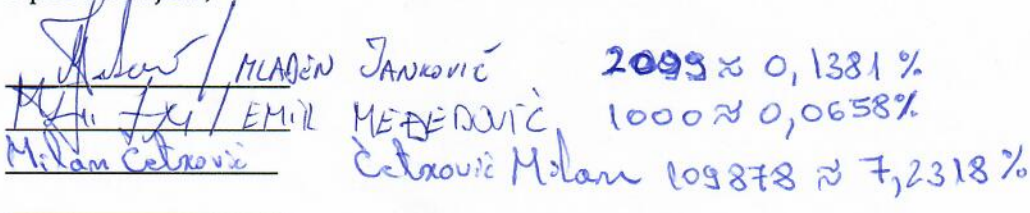 / MLADEN JANKOVIĆ 2099 ≈ 0,1381 %
/ EMIR MEĐEDOVIĆ, 1000 ≈ 0,0658%
Milan Četković Četković Milan 109878 ≈ 7,2318 %